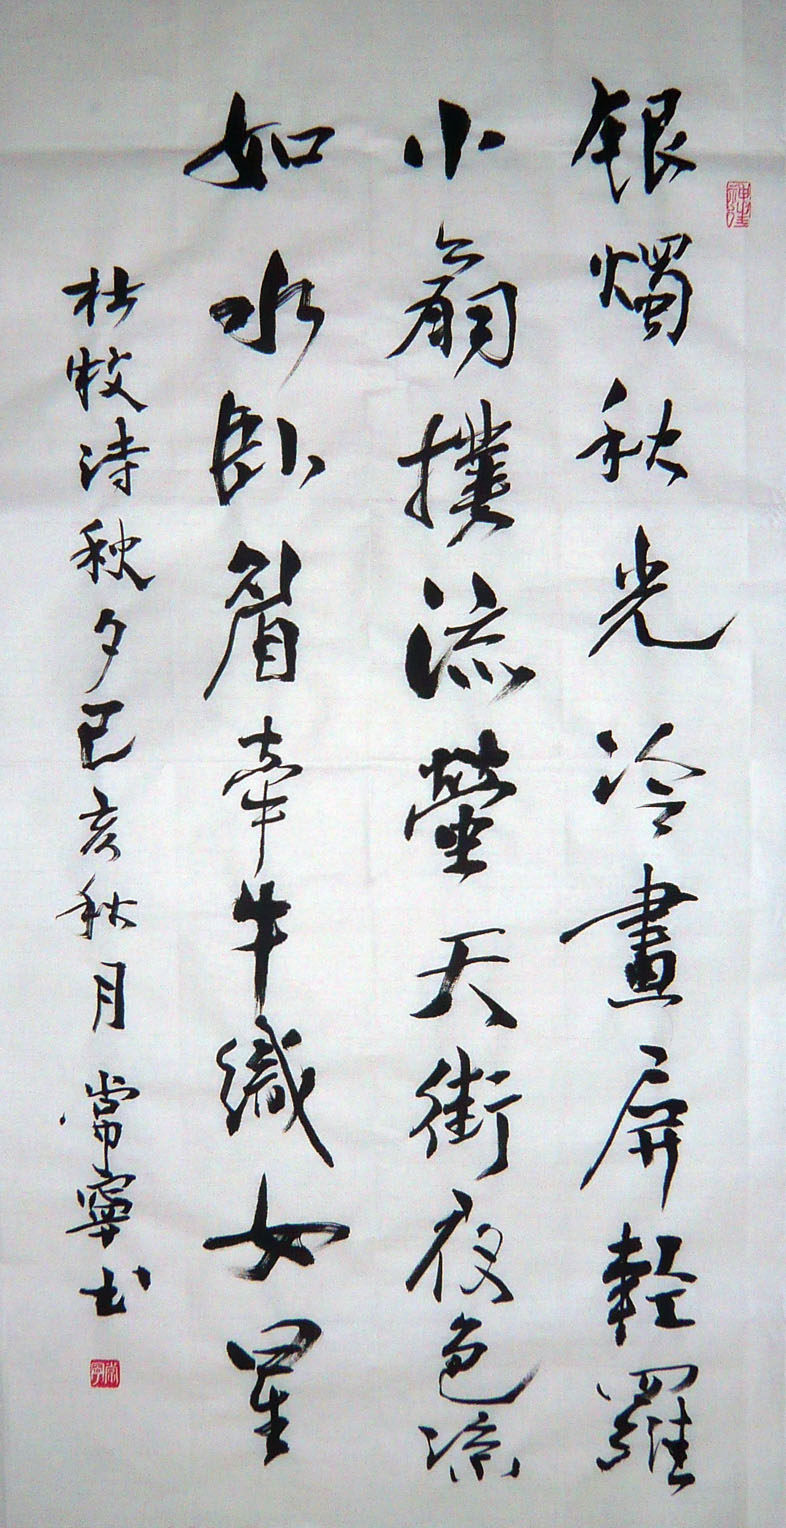 银燭秋光冷畫屏輕羅
小扇撲流螢天街夜色凉
如水卧眉牽牛織女星
杜牧詩秋夕己亥秋月常寧书